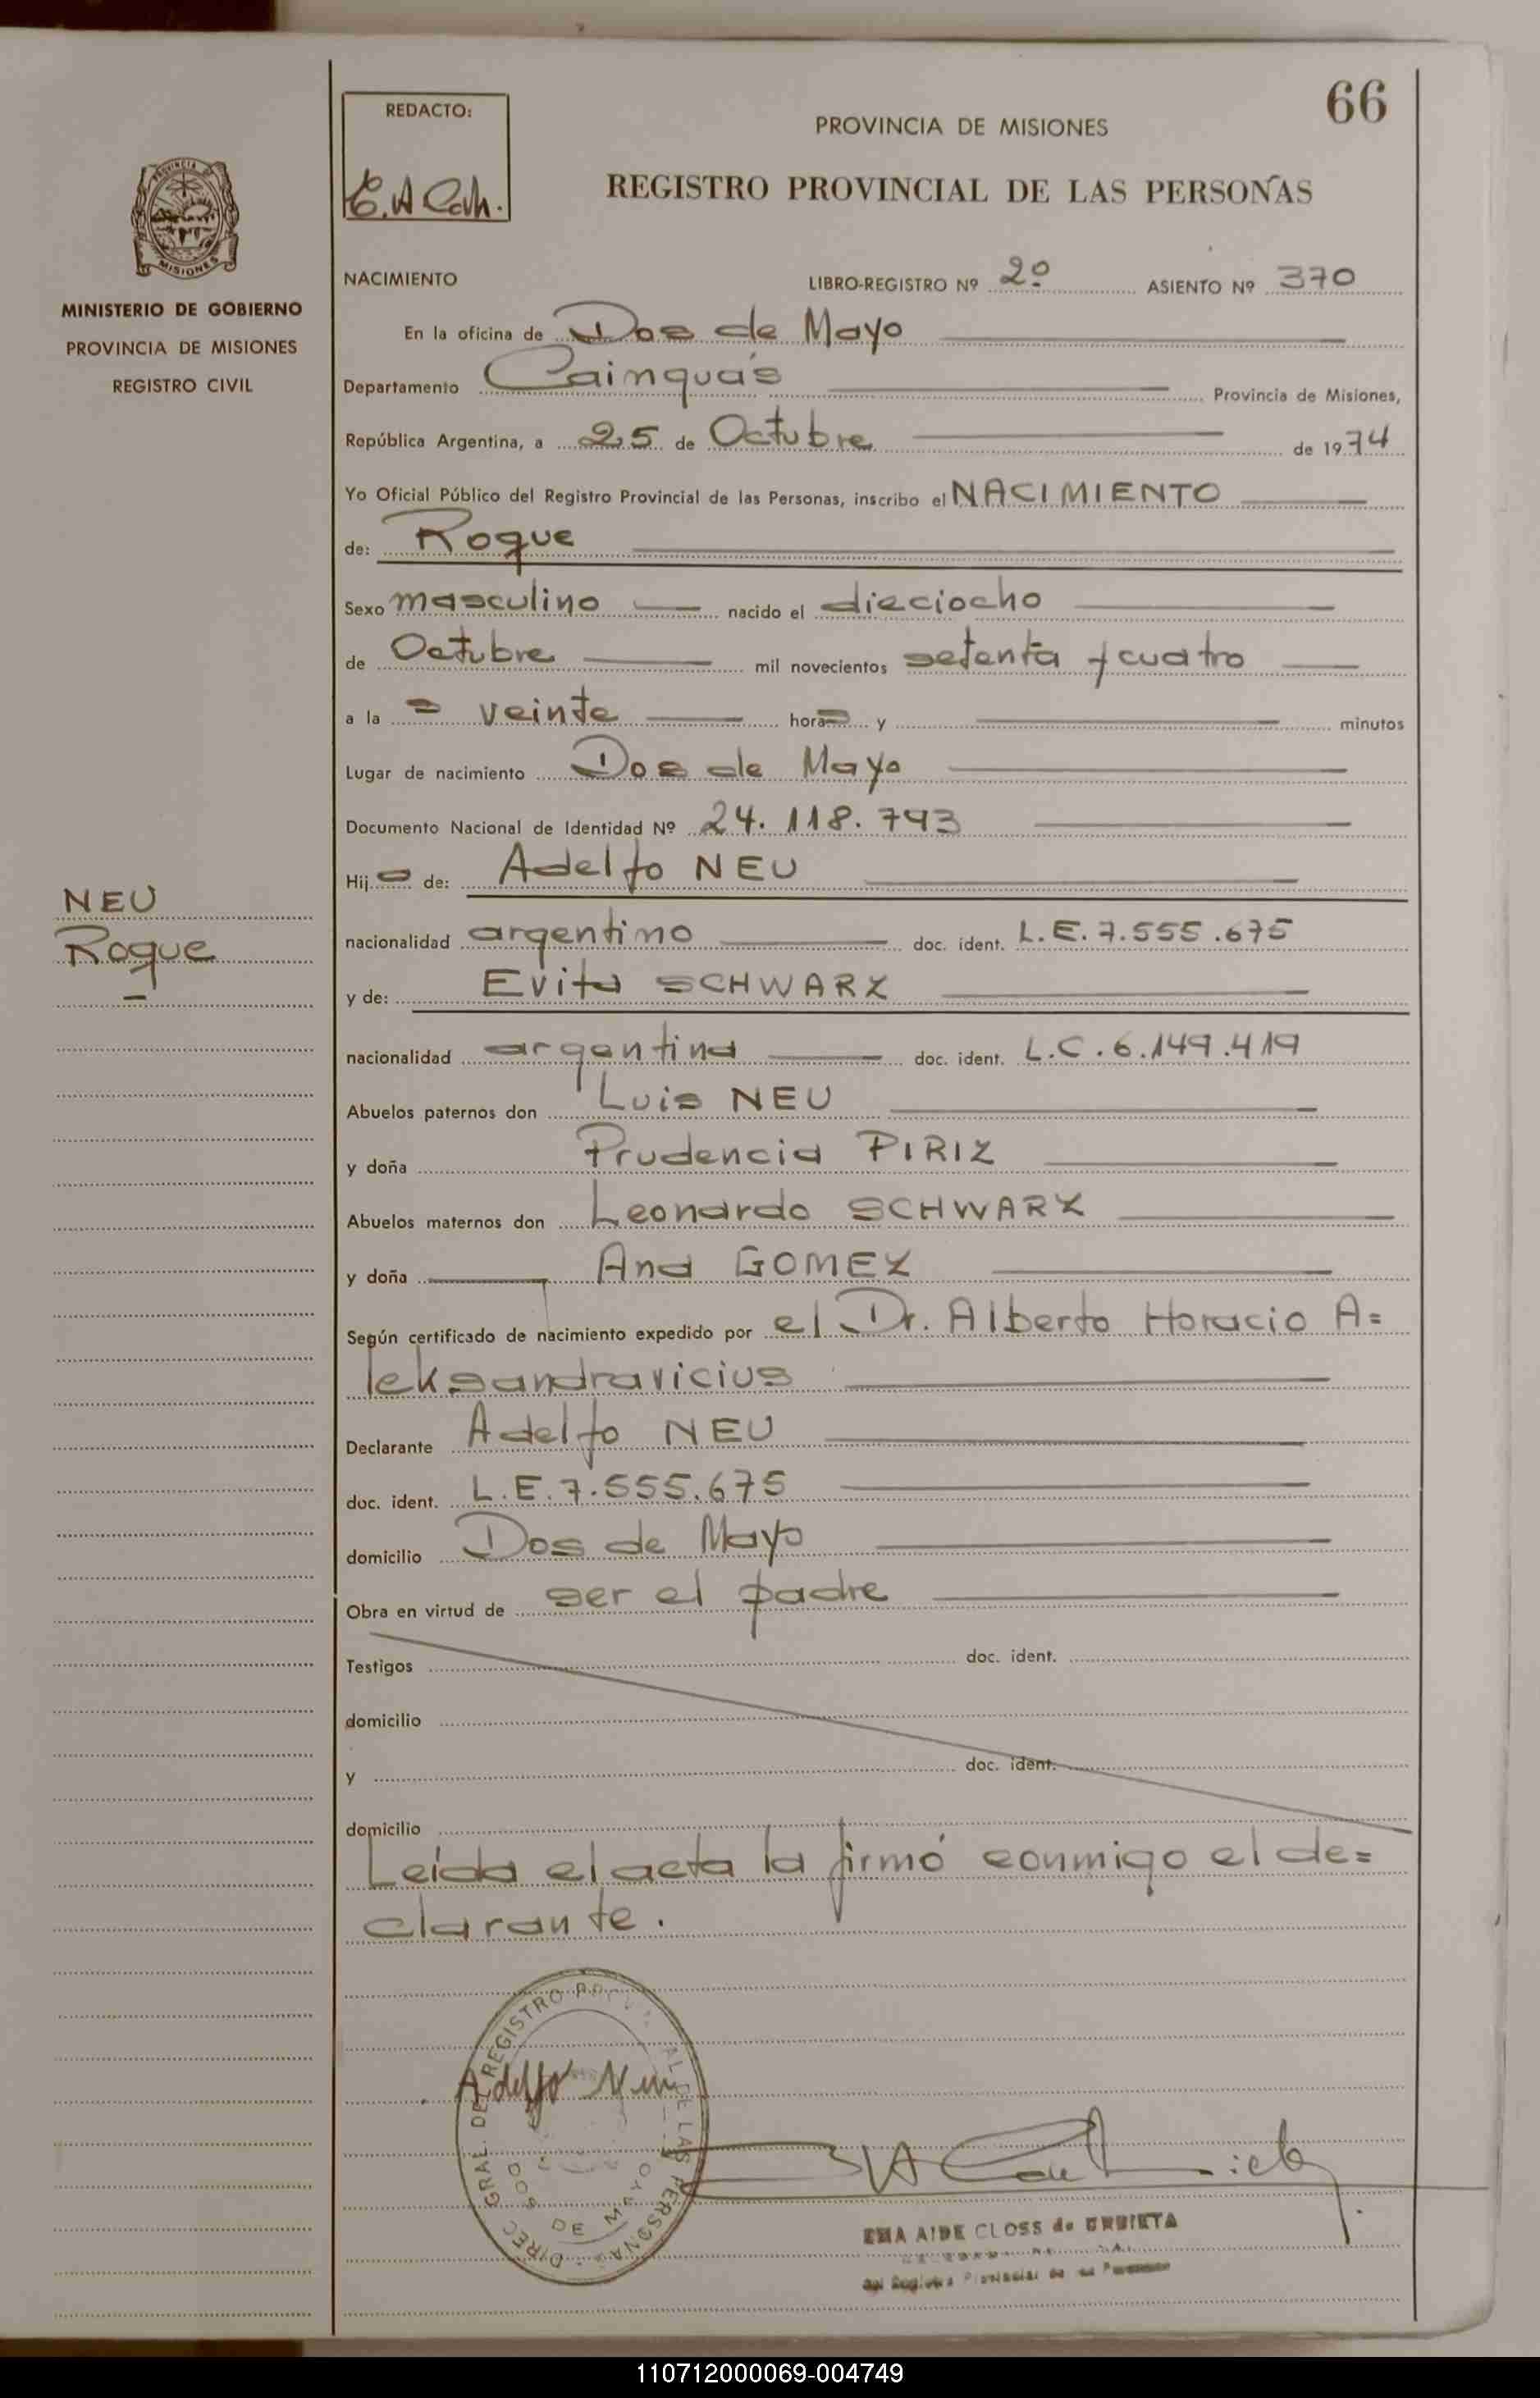 66
REDACTO:
PROVINCIA DE MISIONES
REGISTRO PROVINCIAL DE LAS PERSONAS
MISIONES
MINISTERIO DE GOBIERNO
PROVINCIA DE MISIONES
REGISTRO CIVIL
NACIMIENTO LIBRO-REGISTRO Nº 2º ASIENTO Nº 370
En la oficina de Dos de Mayo
Departamento Cainguás Provincia de Misiones,
República Argentina, a 25 de Octubre de 1974
Yo Oficial Público del Registro Provincial de las Personas, inscribo el NACIMIENTO
de: Roque
Sexo masculino nacido el dieciocho
de Octubre mil novecientos setenta y cuatro
a las veinte horas y minutos
Lugar de nacimiento Dos de Mayo
Documento Nacional de Identidad Nº 24.118.793
Hijo de: Adelfo NEU
NEU
Roque
nacionalidad argentino doc. ident. L.E.7.555.675
y de: Evita SCHWARZ
nacionalidad argentina doc. ident. L.C.6.149.419
Abuelos paternos don Luis NEU
y doña Prudencia PIRIZ
Abuelos maternos don Leonardo SCHWARZ
y doña Ana GOMEZ
Según certificado de nacimiento expedido por el Dr. Alberto Horacio A=
leksandravicius
Declarante Adelfo NEU
doc. ident. L.E.7.555.675
domicilio Dos de Mayo
Obra en virtud de ser el padre
Testigos doc. ident.
domicilio
y doc. ident.
domicilio
Leída el acta la firmó conmigo el de=
clarante.
Adelfo Neu
DIREC. GRAL. DEL REGISTRO PROVINCIAL DE LAS PERSONAS
DOS DE MAYO
EMA AIDE CLOSS de URBIETA
del Registro Provincial de las Personas
110712000069-004749